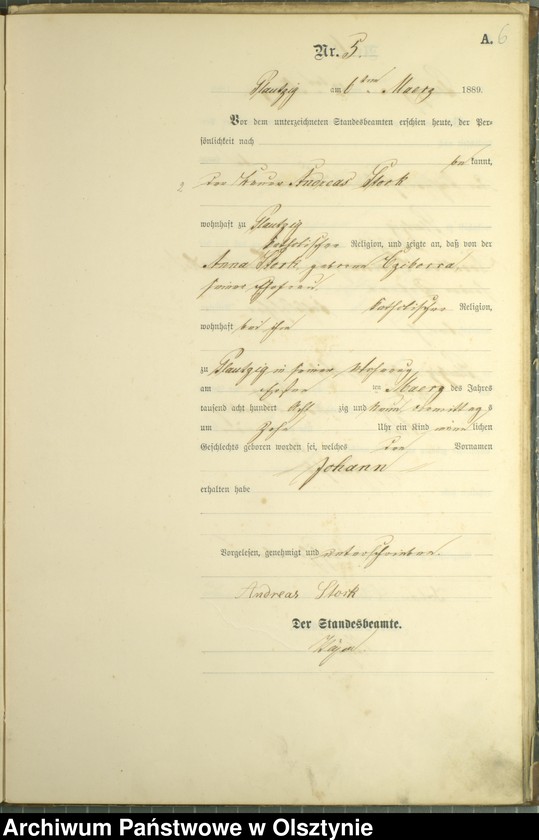 A. 6
Nr. 5.
Plautzig am 6ten Maerz 1889.
Vor dem unterzeichneten Standesbeamten erschien heute, der Per-
sönlichkeit nach
bekannt,
2 der Andreas Stork
wohnhaft zu Plautzig
katholischer Religion, und zeigte an, daß von der
Anna Stork geborene Cziborra
seiner Ehefrau
katholischer Religion,
wohnhaft bei ihm
zu Plautzig in seiner Wohnung
am ersten ten Maerz des Jahres
tausend acht hundert Acht zig und Neun vormittags
um Zehn Uhr ein Kind männlichen
Geschlechts geboren worden sei, welches den Vornamen
Johann
erhalten habe
Vorgelesen, genehmigt und unterschrieben.
Andreas Stork
Der Standesbeamte.
Archiwum Państwowe w Olsztynie